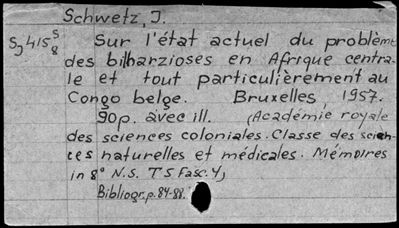 Schwetz, J.
S) 415 S/8 Sur l'état actuel du problème
des bilharzioses en Afrique centra-
le et tout particulièrement au
Congo belge. Bruxelles, 1957.
90p. avec ill. (Académie royale
des sciences coloniales. Classe des scien-
ces naturelles et médicales. Mémoires
in 8° N.S. T 5 fasc. 4)
Bibliogr. p. 84-88.